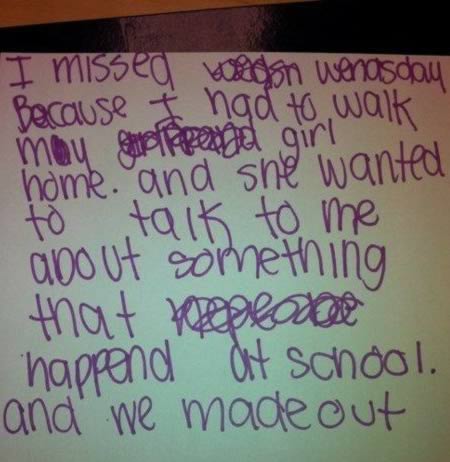 I missed wenasday
Because I had to walk
my girl
home. and she wanted
to talk to me
about something
that
happend at school.
and we made out